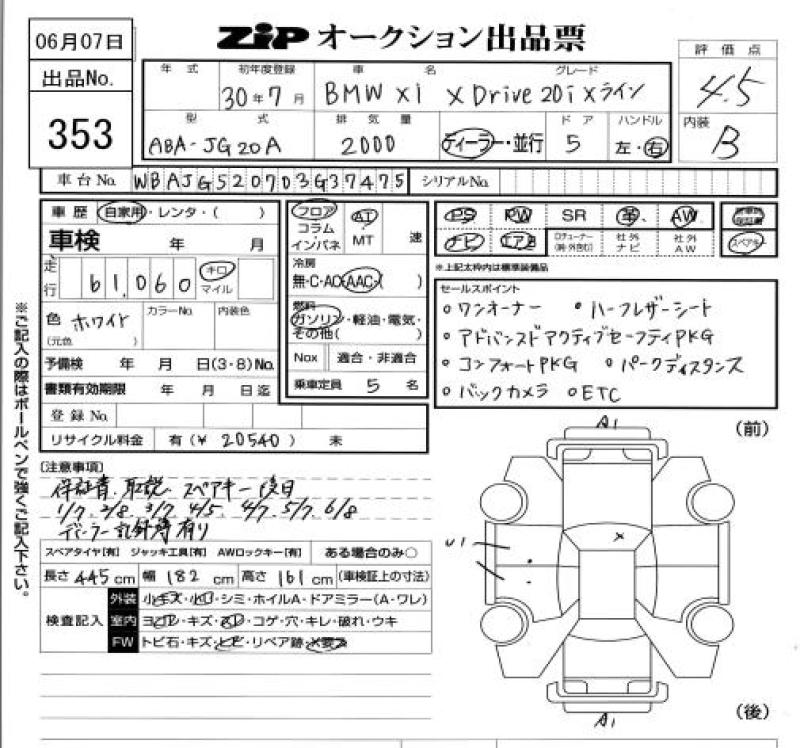 06月07日
出品No.
353
ZiP オークション出品票
年式 初年度登録 車名 グレード
30年7月 BMW X1 xDrive 20i xライン
型式 排気量 ドア ハンドル
ABA-JG20A 2000 ディーラー・並行 5 左・右
評価点
4.5
内装
B
車台No. WBAJG520703G37475 シリアルNo.
車歴 自家用・レンタ・( )
車検 年 月
走行 61,060 キロ マイル
色 ホワイト
(元色 )
カラーNo. 内装色
予備検 年 月 日(3・8)No.
書類有効期限 年 月 日迄
登録No.
リサイクル料金 有(¥ 20540 ) 未
フロア コラム インパネ
AT MT 速
冷房
無・C・AC・AAC・( )
燃料
ガソリン・軽油・電気・
その他( )
Nox 適合・非適合
乗車定員 5 名
PS PW SR 革 AW
ナビ エアB ロチューナー 社外ナビ 社外AW スペアキー
※上記太枠内は標準装備品
セールスポイント
○ワンオーナー ○ハーフレザーシート
○アドバンスドアクティブセーフティPKG
○コンフォートPKG ○パークディスタンス
○バックカメラ ○ETC
(注意事項)
保証書、取説、スペアキー後日
1/7、2/8、3/7、4/5、4/7、5/7、6/8
ディーラー記録簿有り
スペアタイヤ[有] ジャッキ工具[有] AWロックキー[有] ある場合のみ○
長さ 445 cm 幅 182 cm 高さ 161 cm (車検証上の寸法)
検査記入
外装 小キズ・小凹・シミ・ホイルA・ドアミラー(A・ワレ)
室内 ヨゴレ・キズ・スレ・コゲ・穴・キレ・破れ・ウキ
FW トビ石・キズ・ヒビ・リペア跡・X要ス
※ご記入の際はボールペンで強くご記入下さい。
A1
(前)
X
U1
A1
(後)